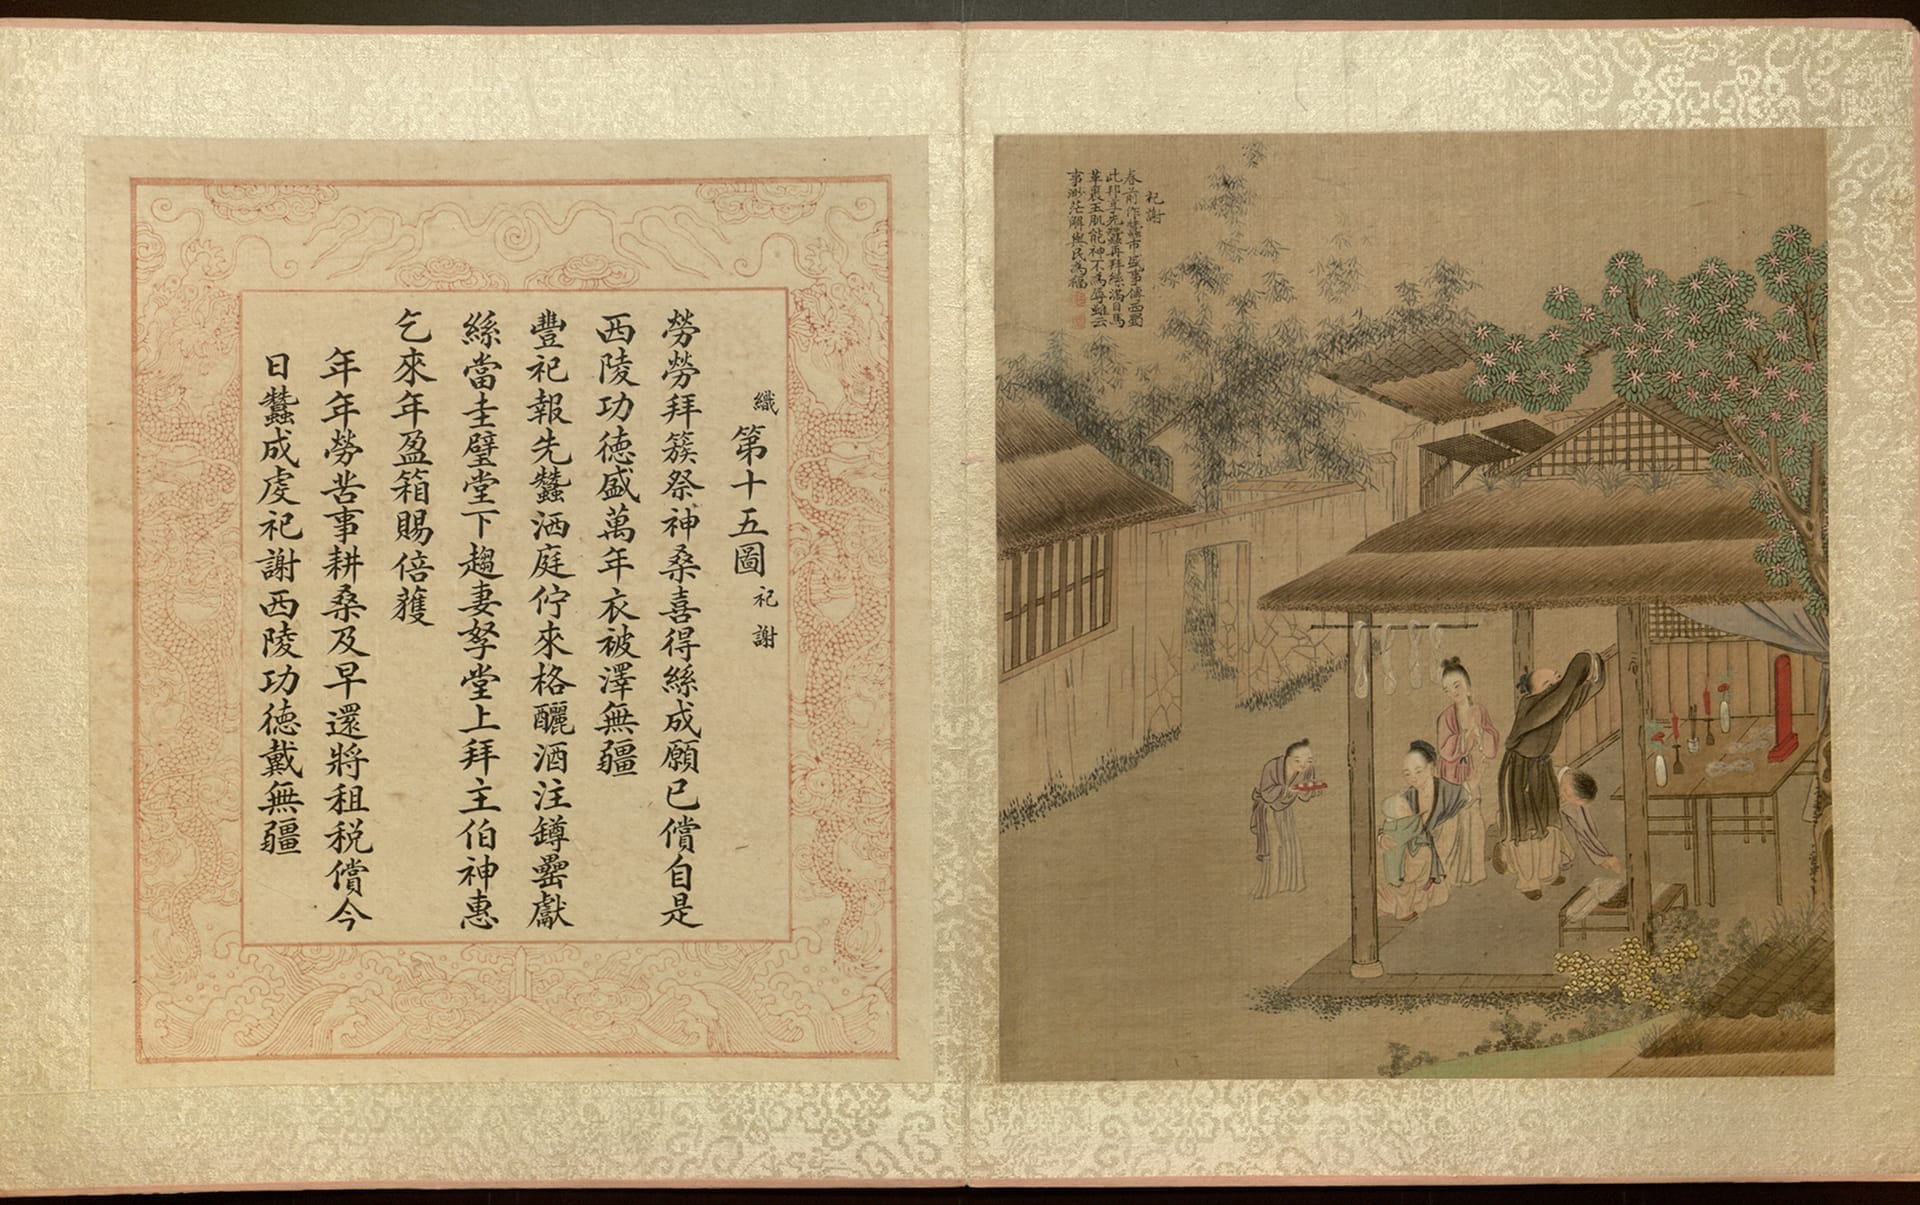 祀謝
春前作蠶市盛事傳西蜀
此邦享先蠶再拜絲滿目馬
革裹玉肌能神不為辱雖云
事渺茫解與民為福
織 第十五圖 祀謝
勞勞拜簇祭神桑喜得絲成願已償自是
西陵功德盛萬年衣被澤無疆
豐祀報先蠶洒庭佇來格釃酒注罇罍獻
絲當圭璧堂下趨妻孥堂上拜主伯神惠
乞來年盈箱賜倍蒦
年年勞苦事耕桑及早還將租稅償今
日蠶成虔祀謝西陵功德戴無疆